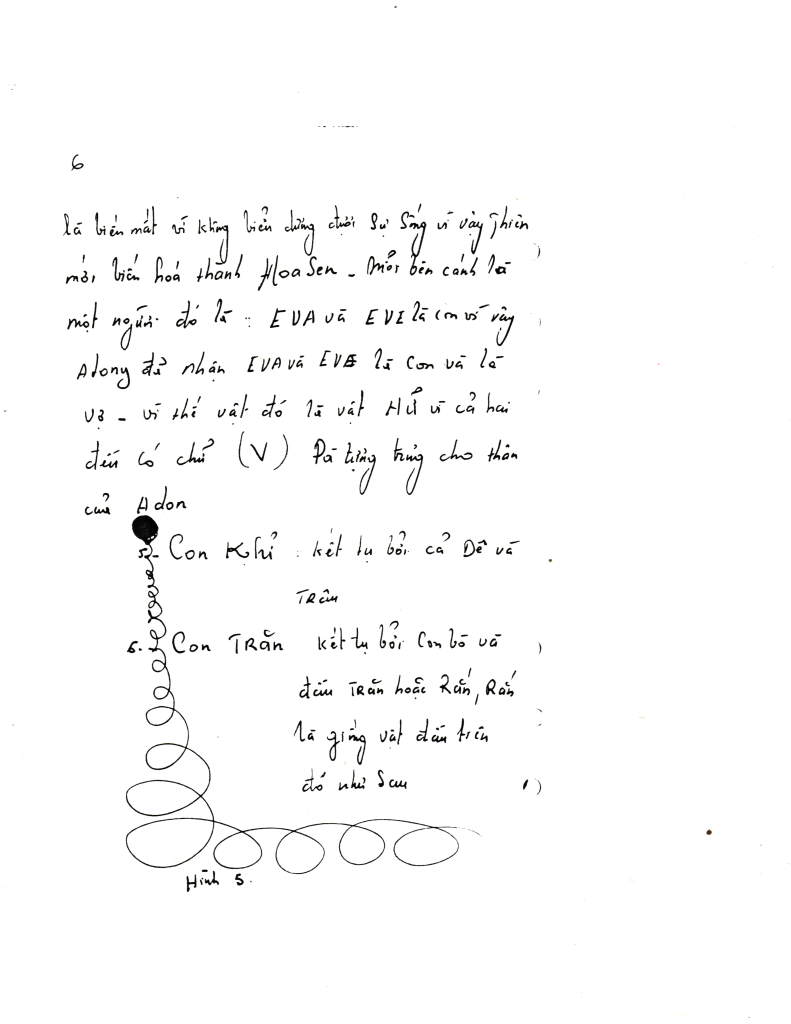 6
là biến mất vì không biển chứng dưới Sự Sống vì vậy Thiên
mới biến hoá thành Hoa Sen - Mỗi bên cánh là
một người đó là : EVA và EVE là con vì vậy
Adong để nhận EVA và EVE là con và là
vợ - vì thế vật đó là vật Hữu vì cả hai
đều có chữ (V) Pà tượng trưng cho thân
của Adon
5.- Con Khỉ : kết tụ bởi cả Dê và
Trâu
6.- Con TRăn kết tụ bởi Con bò và
đầu TRăn hoặc Rắn, Rắn
là giống vật đầu tiên
đó như Sau
Hình 5.